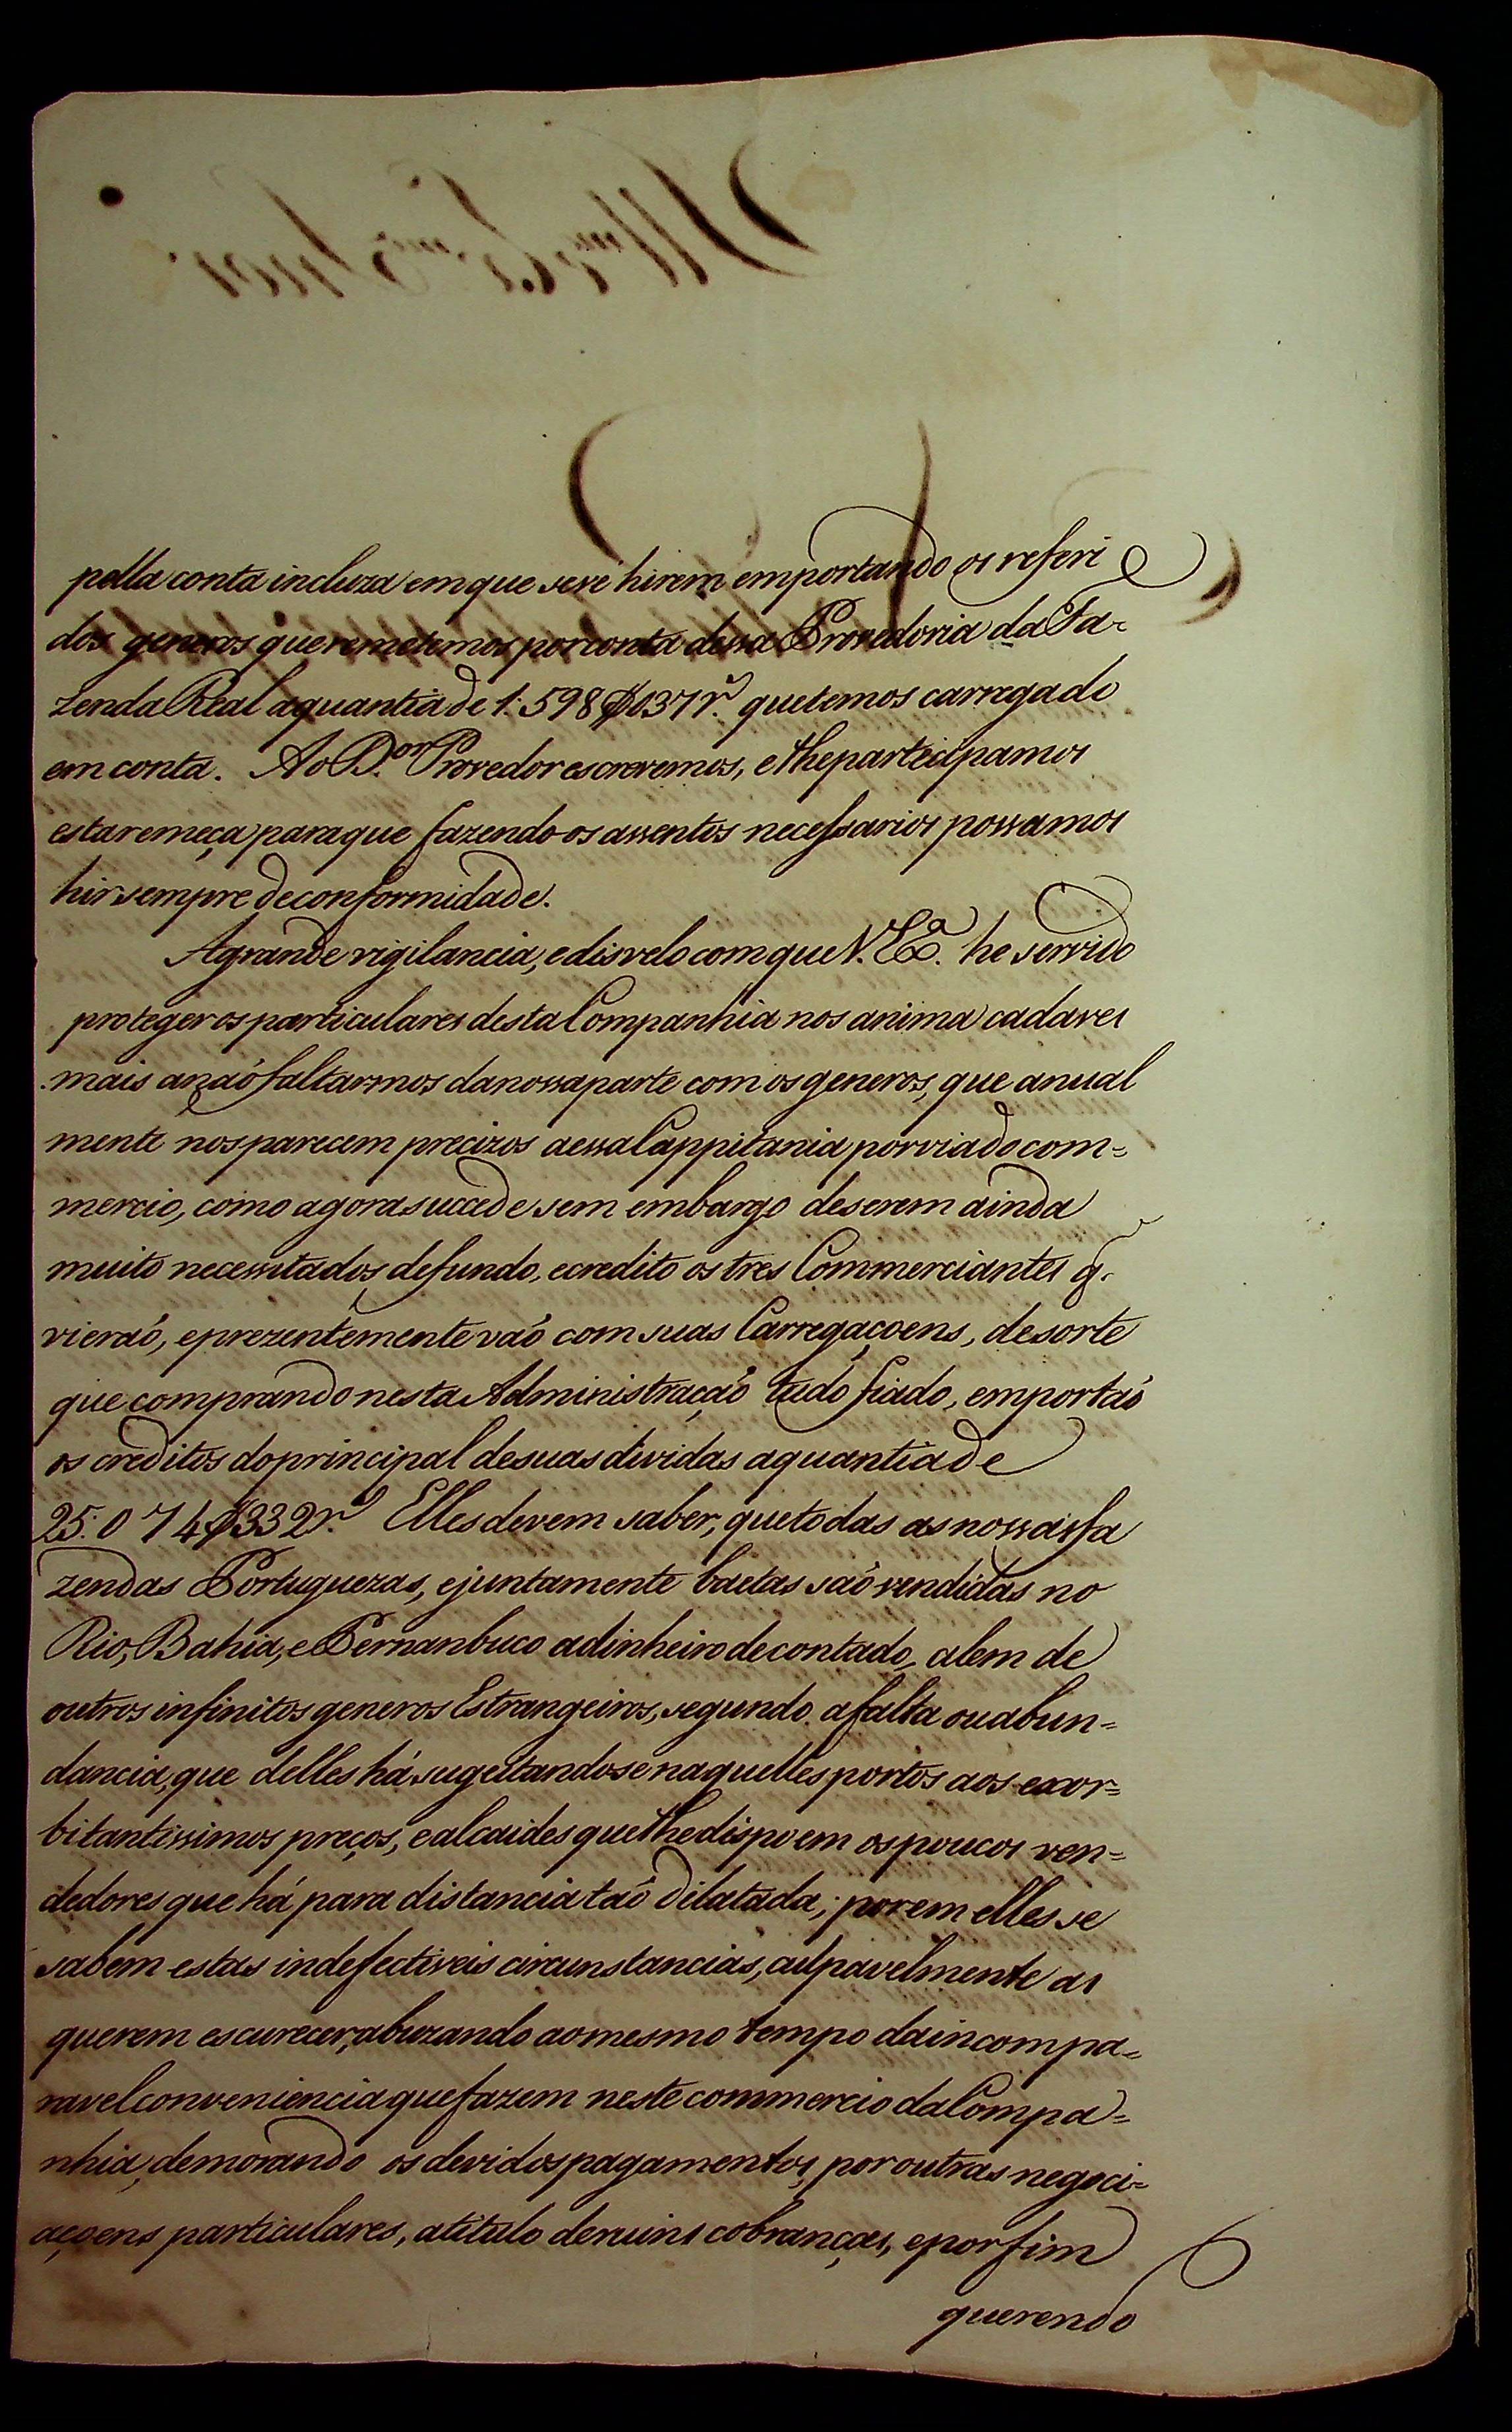 pella conta incluza em que se vé hirem emportando os referi
dos generos que remetemos por conta dessa Provedoria da Fa-
zenda Real a quantia de 1:598$037 r.s que temos carregado
em conta. Ao D.or Provedor escrevemos, e lhe participamos
esta remeça para que fazendo os assentos necessarios possamos
hir sempre de conformidade.
A grande vigilancia, e disvelo com que V. Ex.a he servido
proteger os particulares desta Companhia nos anima cada ves
mais a naõ faltarmos da nossa parte com os generos, que anual
mente nos parecem precizos a essa Cappitania por via do com=
mercio, como agora succede sem embargo de serem ainda
muito necessitados de fundo, e credito os tres Commerciantes q.
vieraõ, e prezentemente vaõ com suas Carregaçoens, de sorte
que comprando nesta Administraçaõ tudo fiado, emportaõ
os creditos do principal de suas dividas a quantia de
25:074$332 r.s Elles devem saber, que todas as nossas fa
zendas Portuguezas, e juntamente baetas saõ vendidas no
Rio, Bahia, e Pernanbuco a dinheiro de contado, alem de
outros infinitos generos Estrangeiros, segundo a falta ou abun=
dancia, que delles há, sugeitandose naquelles portos aos exor=
bitantissimos preços, e alcaides que lhe dispoem os poucos ven=
dedores que há para distancia taõ dilatada; porem elles se
sabem estas indefectiveis circunstancias, culpavelmente as
querem escurecer, abuzando ao mesmo tempo da incompa=
ravel conveniencia que fazem neste commercio da Compa=
nhia, demorando os devidos pagamentos, por outras negoci=
açoens particulares, a titulo de ruins cobranças, e por fim
querendo